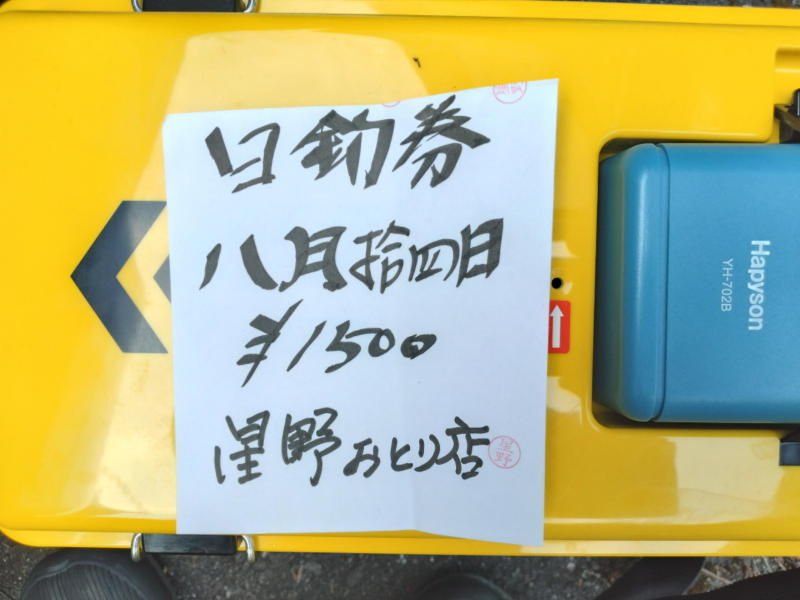 日釣券
八月拾四日
¥1500
星野おとり店
星野
Hapyson
YH-702B